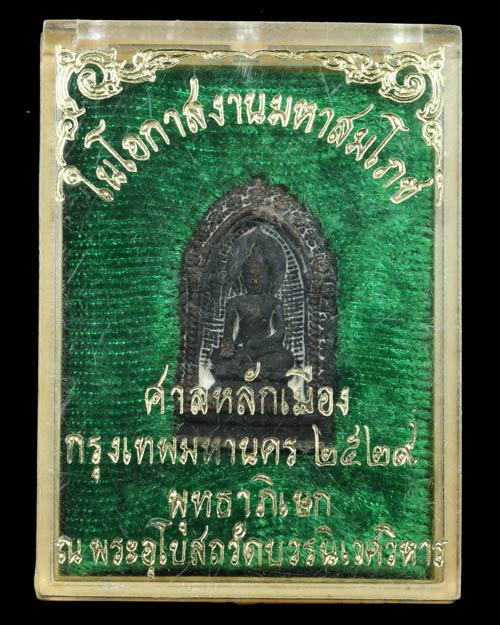 ในโอกาสงานมหาสมโภช
ศาลหลักเมือง
กรุงเทพมหานคร ๒๕๒๙
พุทธาภิเษก
ณ พระอุโบสถวัดบวรนิเวศวิหาร